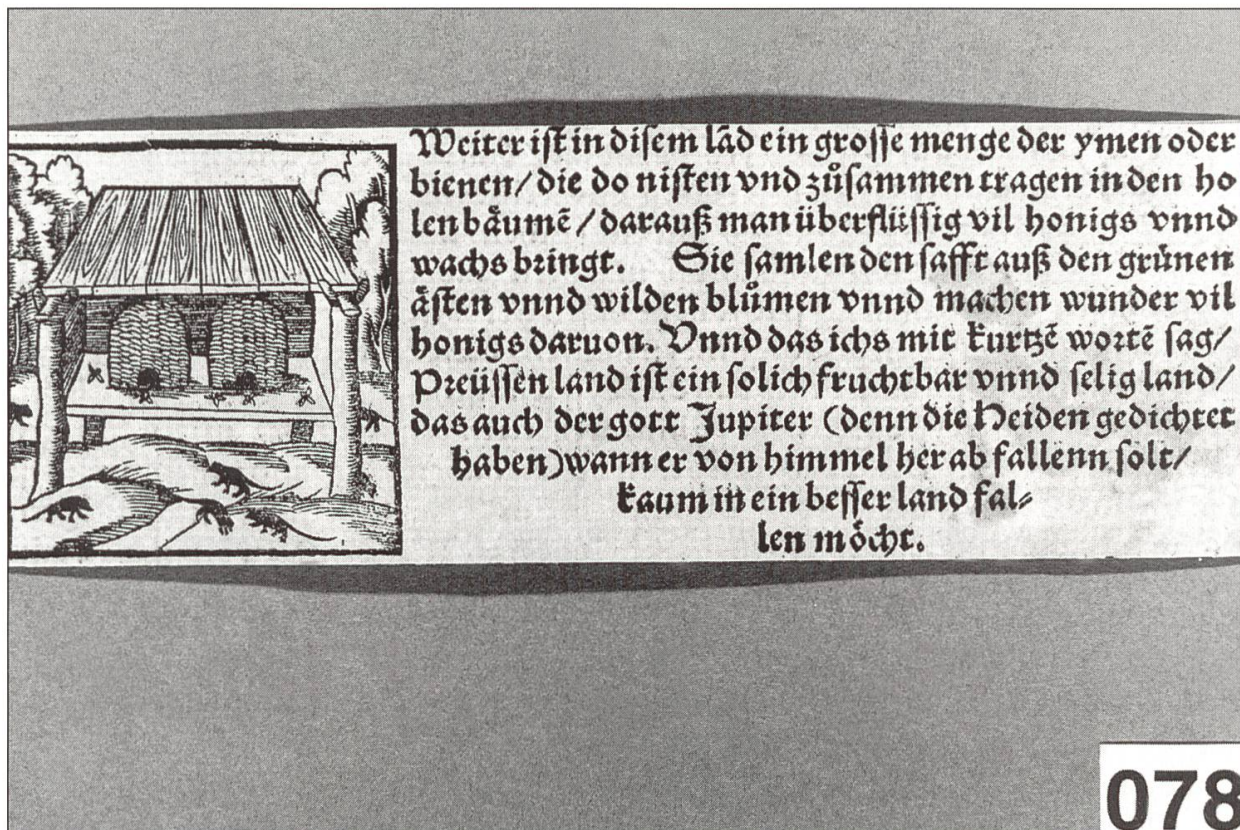 Weiter ist in disem lād ein grosse menge der ymen oder
bienen/ die do nisten vnd zůsammen tragen in den ho
len båumē/ darauß man überflüssig vil honigs vnnd
wachs bringt. Sie samlen den safft auß den grünen
åsten vnnd wilden blůmen vnnd machen wunder vil
honigs daruon. Vnnd das ichs mit kurtzē wortē sag/
Preüssen land ist ein solich fruchtbar vnnd selig land/
das auch der gott Jupiter (denn die Heiden gedichtet
haben) wann er von himmel her ab fallenn solt/
kaum in ein besser land fal⸗
len mőcht.
078